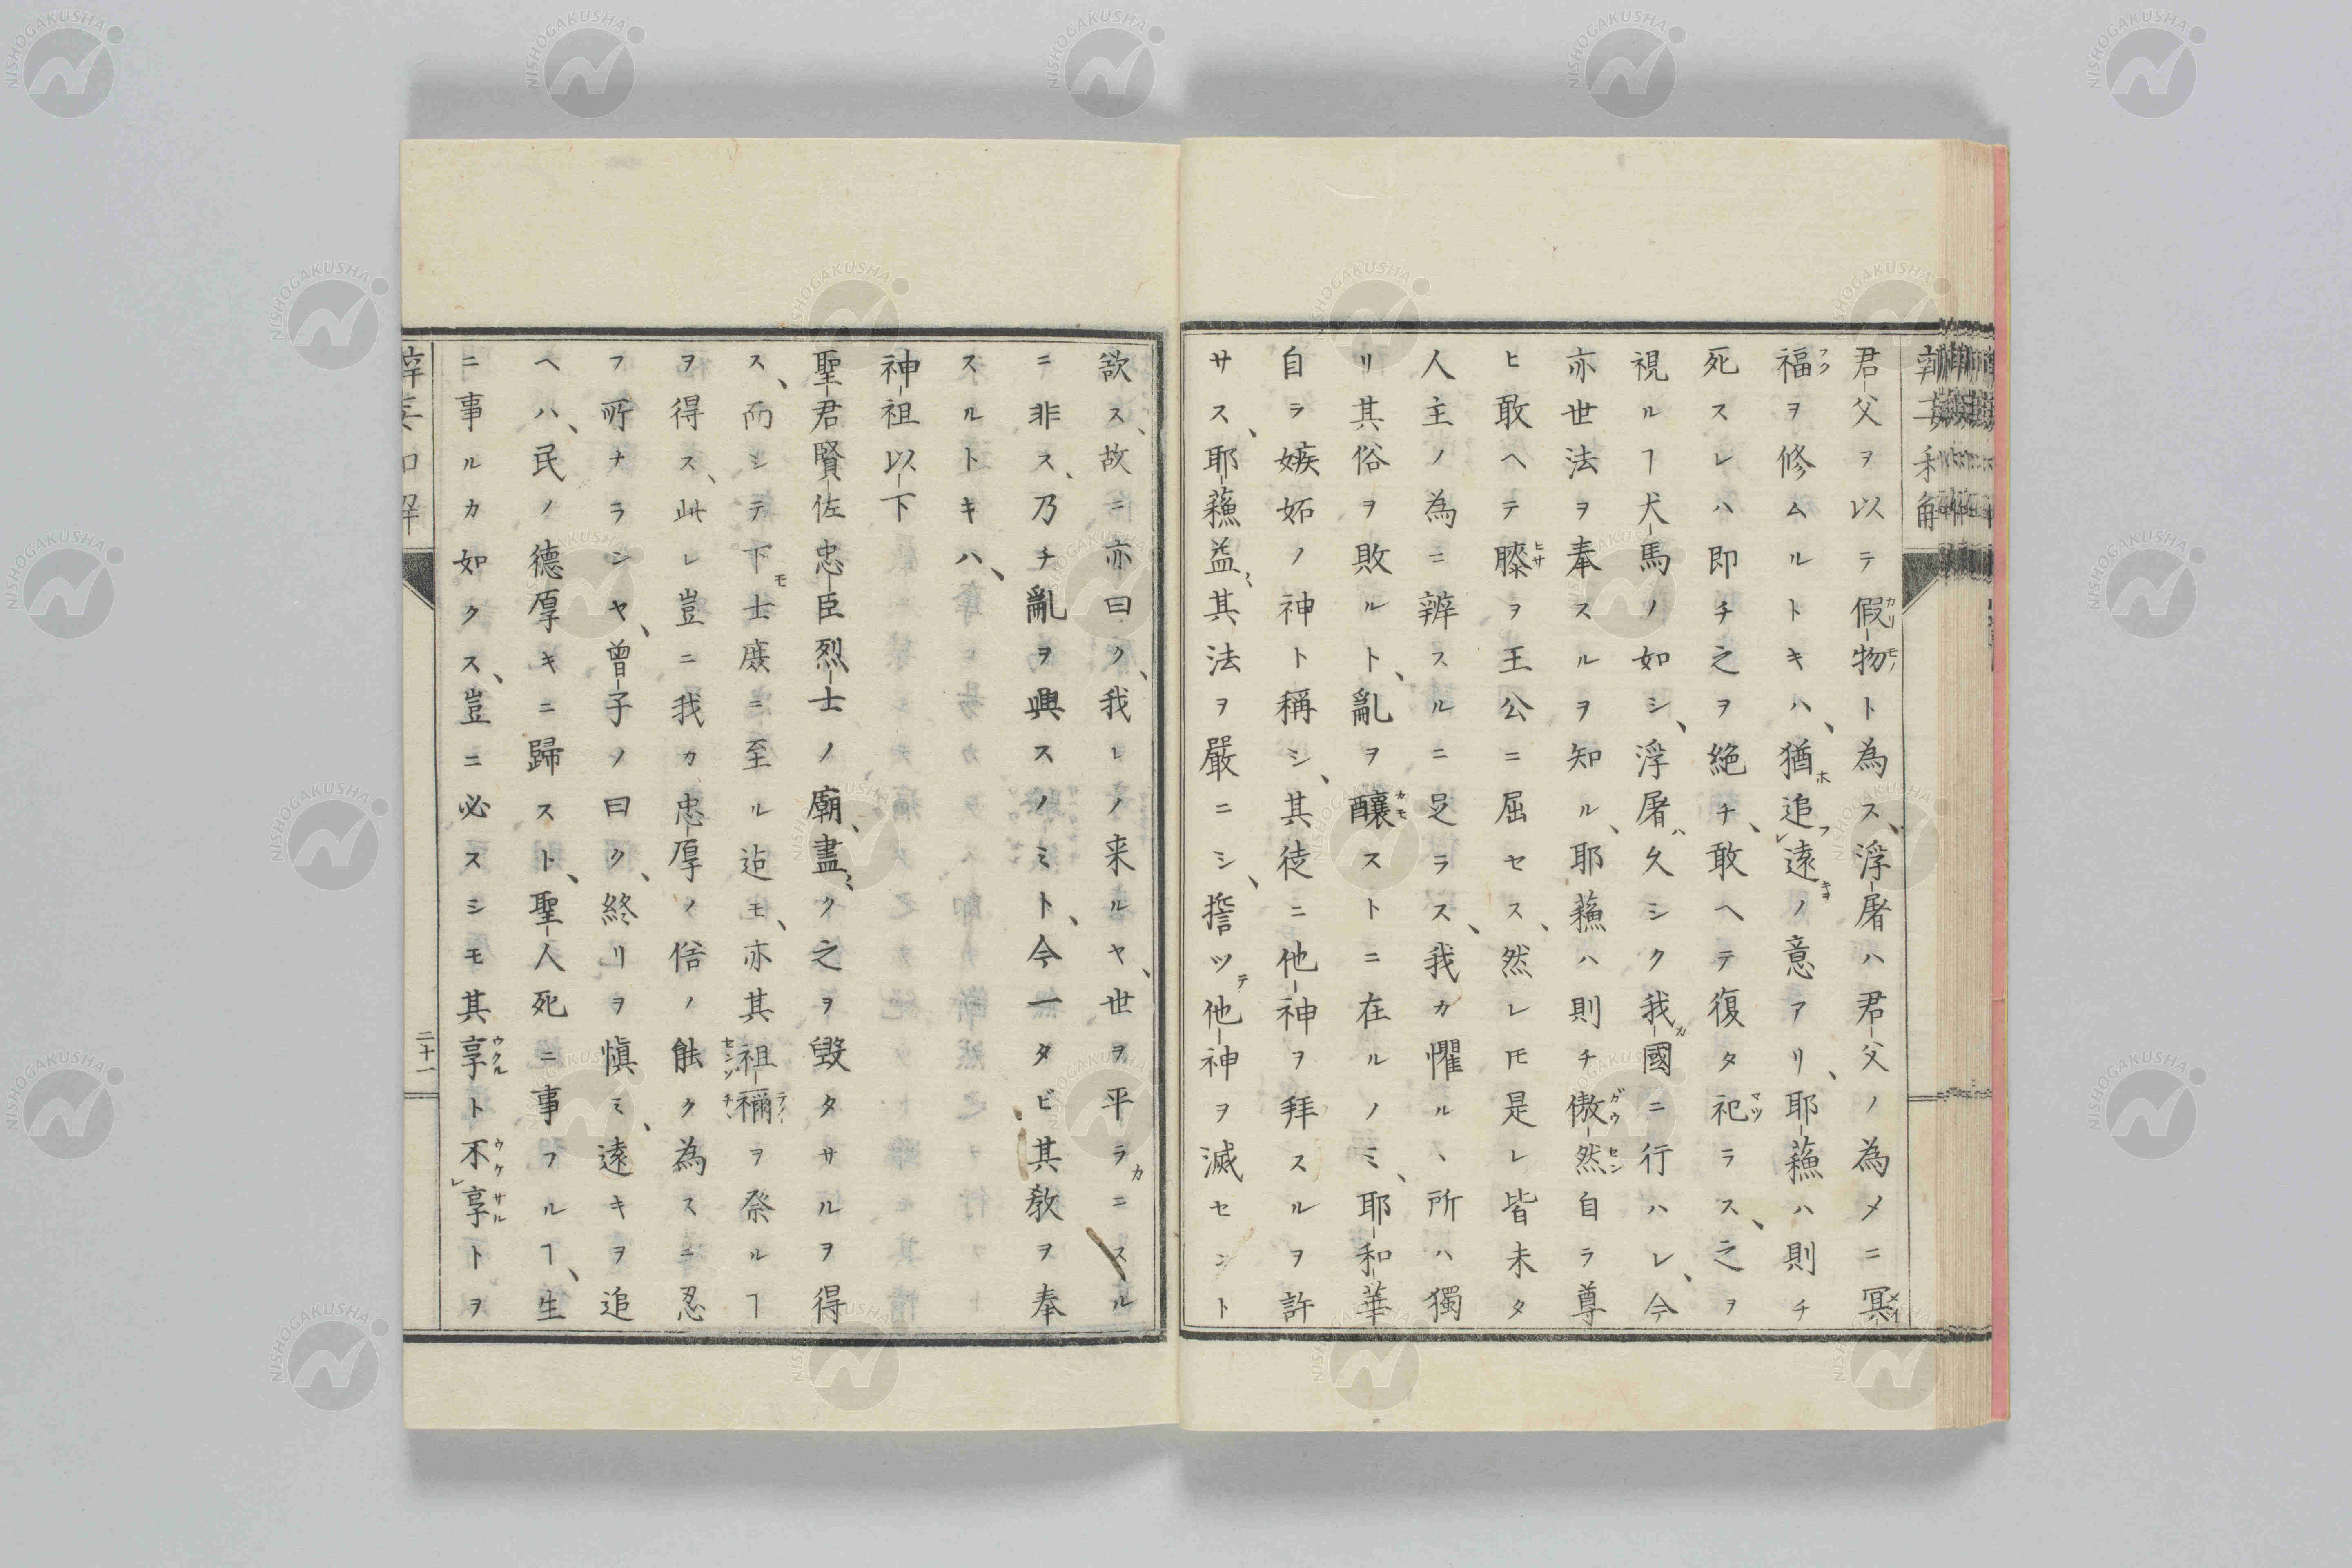 君父ヲ以テ假物ト為ス、浮屠ハ君父ノ為メニ冥
福ヲ修ムルトキハ、猶追遠ノ意アリ、耶蘓ハ則チ
死スレハ即チ之ヲ絶チ、敢ヘテ復タ祀ラス、之ヲ
視ルヿ犬馬ノ如シ、浮屠ハ久シク我國ニ行ハレ、今
亦世法ヲ奉スルヲ知ル、耶蘓ハ則チ傲然自ラ尊
ヒ敢ヘテ膝ヲ王公ニ屈セス、然レ𪜈是レ皆未タ
人主ノ為ニ辨スルニ足ラス、我カ懼ルヽ所ハ獨
リ其俗ヲ敗ルト、亂ヲ釀ストニ在ルノミ、耶和華
自ラ嫉妬ノ神ト稱シ、其徒ニ他神ヲ拜スルヲ許
サス、耶蘓益〻其法ヲ嚴ニシ、擔ツテ他神ヲ滅セント
欲ス、故ニ亦曰ク、我レノ来ルヤ、世ヲ平ラカニスル
ニ非ス、乃チ亂ヲ興スノミト、今一タビ其教ヲ奉
スルトキハ、
神祖以下
聖君賢佐忠臣烈士ノ廟、盡〻ク之ヲ毀タサルヲ得
ス、而シテ下モ士庶ニ至ル迠モ、亦其祖禰ヲ祭ルヿ
ヲ得ス、此レ豈ニ我カ忠厚ノ俗ノ能ク為スニ忍
フ所ナラシヤ、曾子ノ曰ク、終リヲ愼ミ、遠キヲ追
ヘハ、民ノ德厚キニ歸スト、聖人死ニ事フルヿ、生
ニ事ルカ如クス、豈ニ必スシモ其享ト不享トヲ
二十一
NISHOGAKUSHA